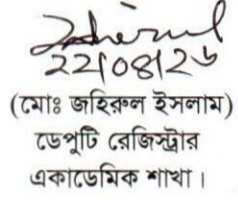 ২২/০৪/২৬
(মোঃ জহিরুল ইসলাম)
ডেপুটি রেজিস্ট্রার
একাডেমিক শাখা।